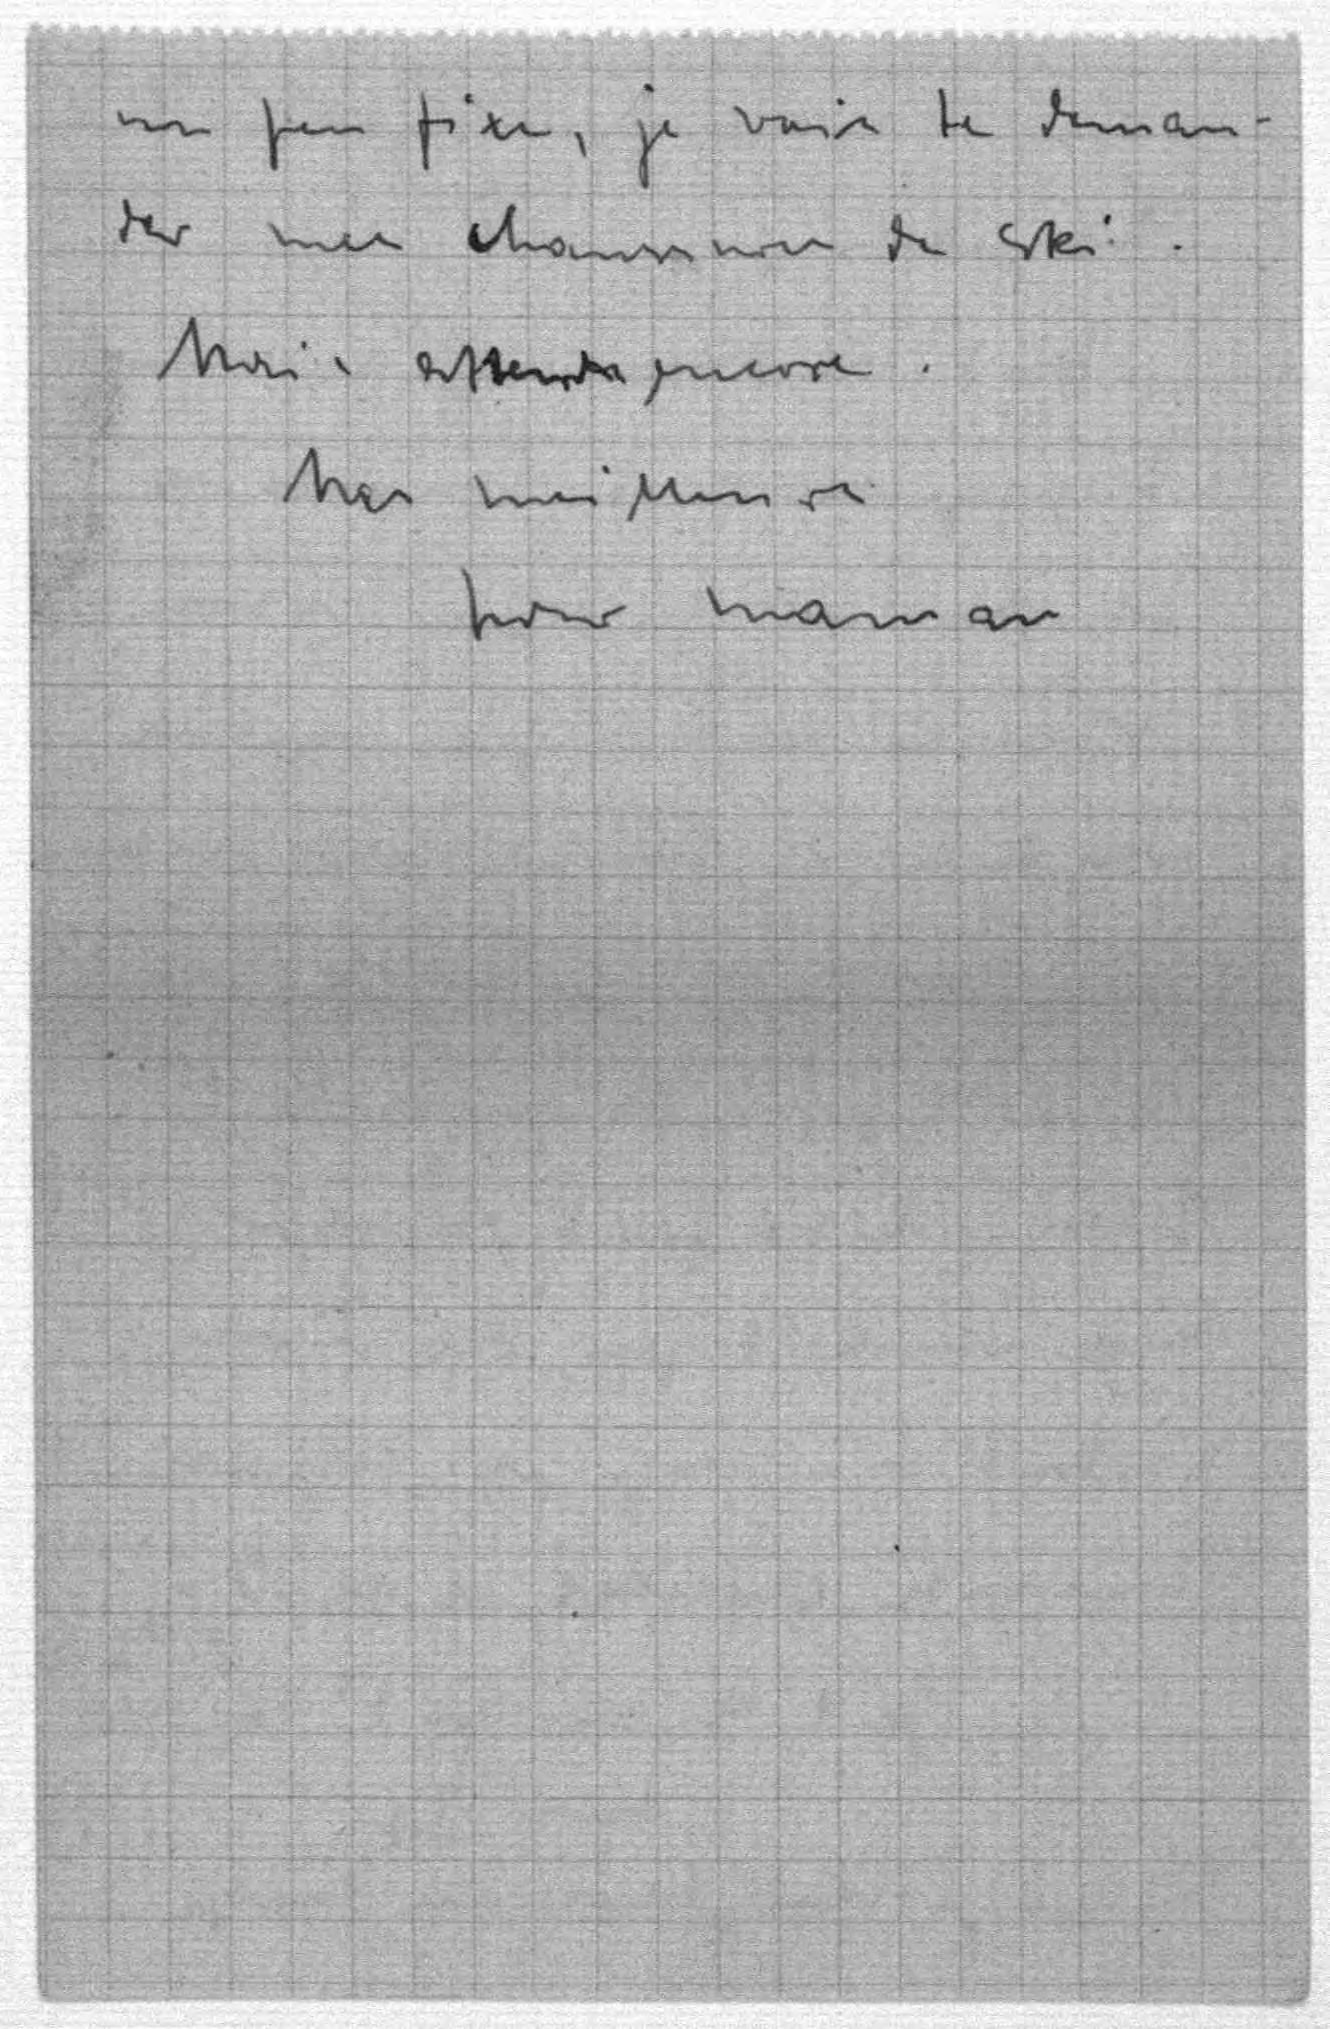 un peu fixe, je vais te deman-
der mes chaussures de ski.
Mais attends encore.
Mes meilleures
pour maman